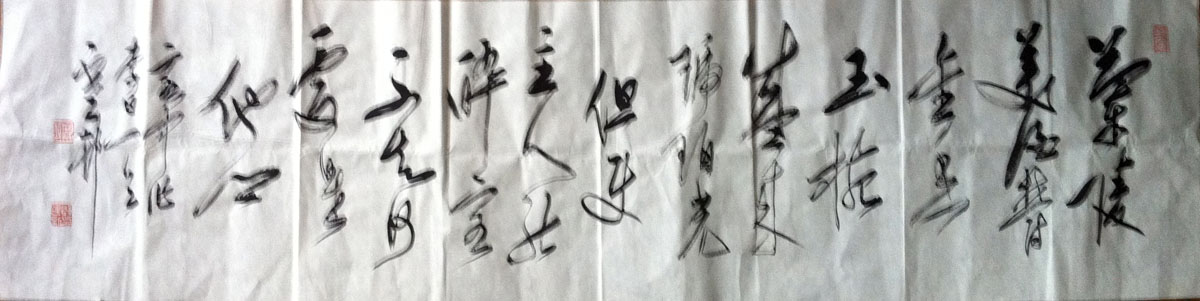 蘭陵
美酒鬱
金香
玉椀
盛来
琥珀光
但使
主人能
醉客
不知何
處是
他乡
李白一首